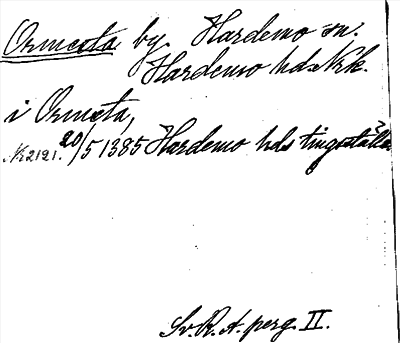 Ormesta by Hardemo sn.
Hardemo hd. Nrk.
i Ormeta,
Nr 2121. 20/5 1385 Hardemo hds tingställe
Sv. R. A. perg. II.